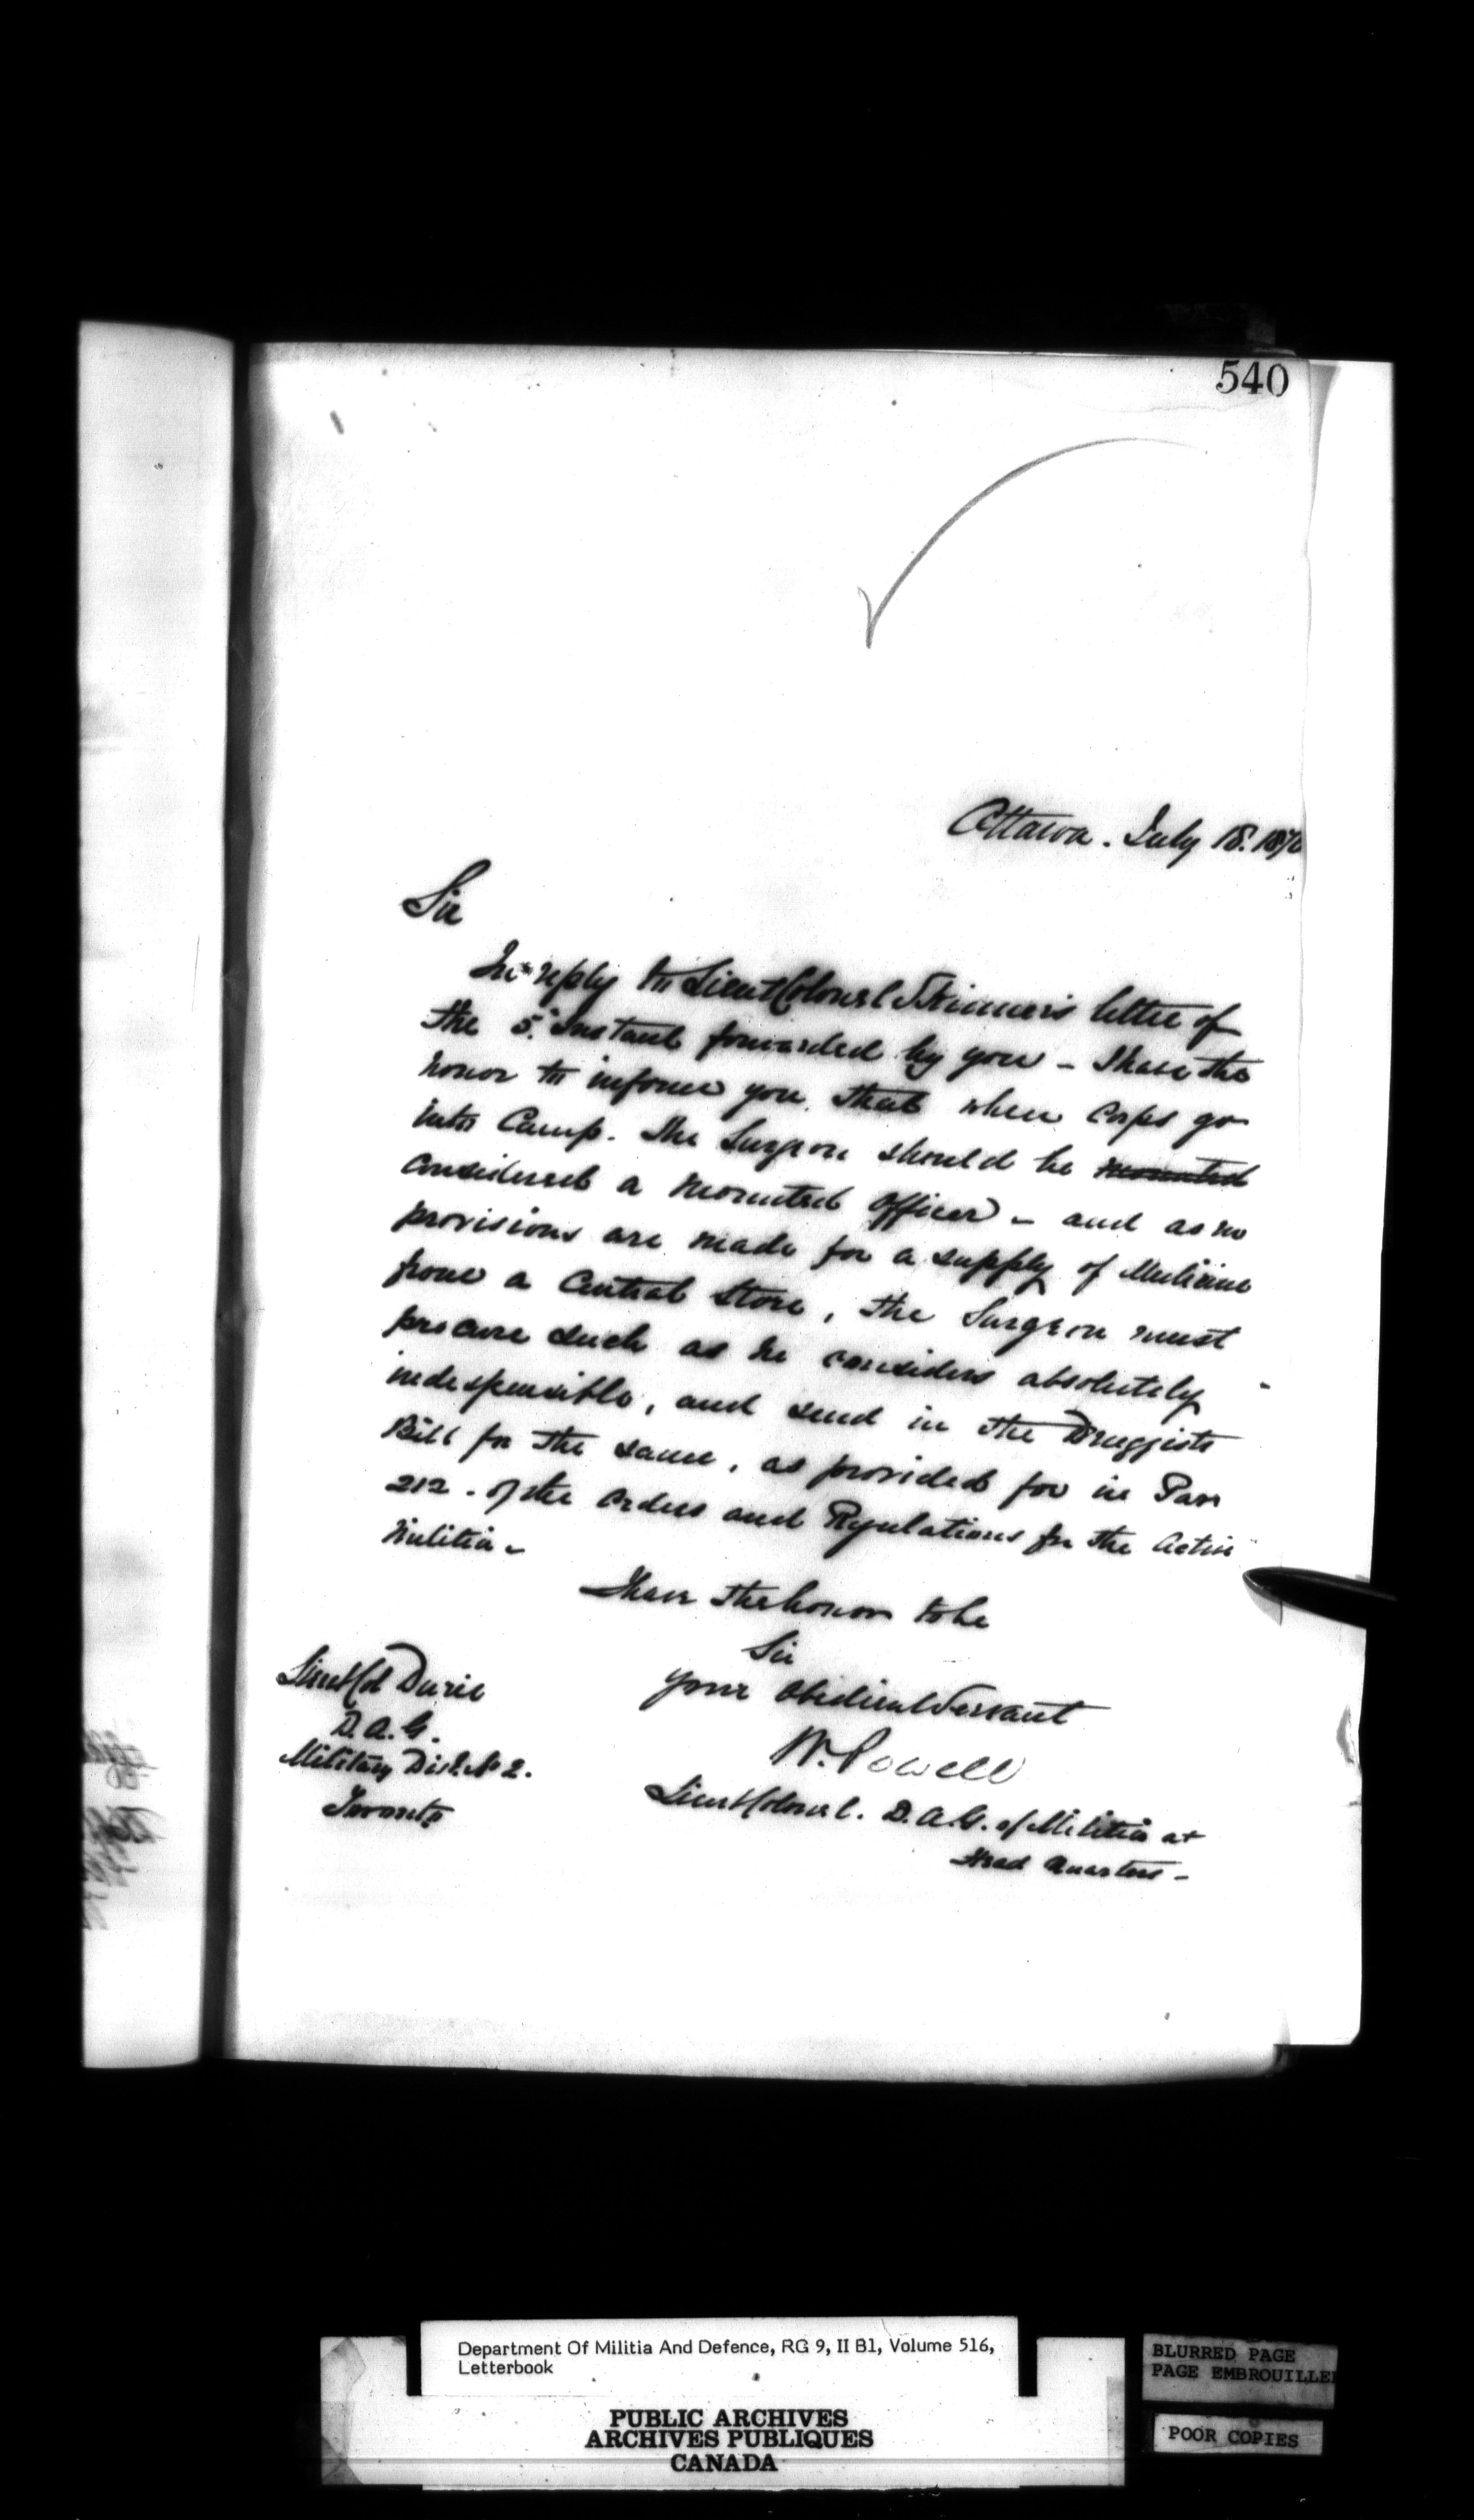 540
Ottawa. July 18. 1870
Sir
In reply to Lieut Colonel Skinner's letter of
the 5th Instant forwarded by you - I have the
honor to inform you that when Corps go
into Camp. The Surgeon should be mounted
considered a mounted officer - and as no
provisions are made for a supply of Medicine
from a Central Store, the Surgeon must
procure such as he considers absolutely
indespensible, and send in the Druggists
Bill for the same, as provided for in Par
212. of the Orders and Regulations for the Active
Militia -
I have the honor to be
Sir
your obedient Servant
W. Powell
Lieut Colonel. D.A.G. of Militia at
Head Quarters -
Lieut Col Durie
D.A.G.
Military Dist. No 2.
Toronto
Department Of Militia And Defence, RG 9, II B1, Volume 516,
Letterbook
PUBLIC ARCHIVES
ARCHIVES PUBLIQUES
CANADA
BLURRED PAGE
PAGE EMBROUILLEE
POOR COPIES